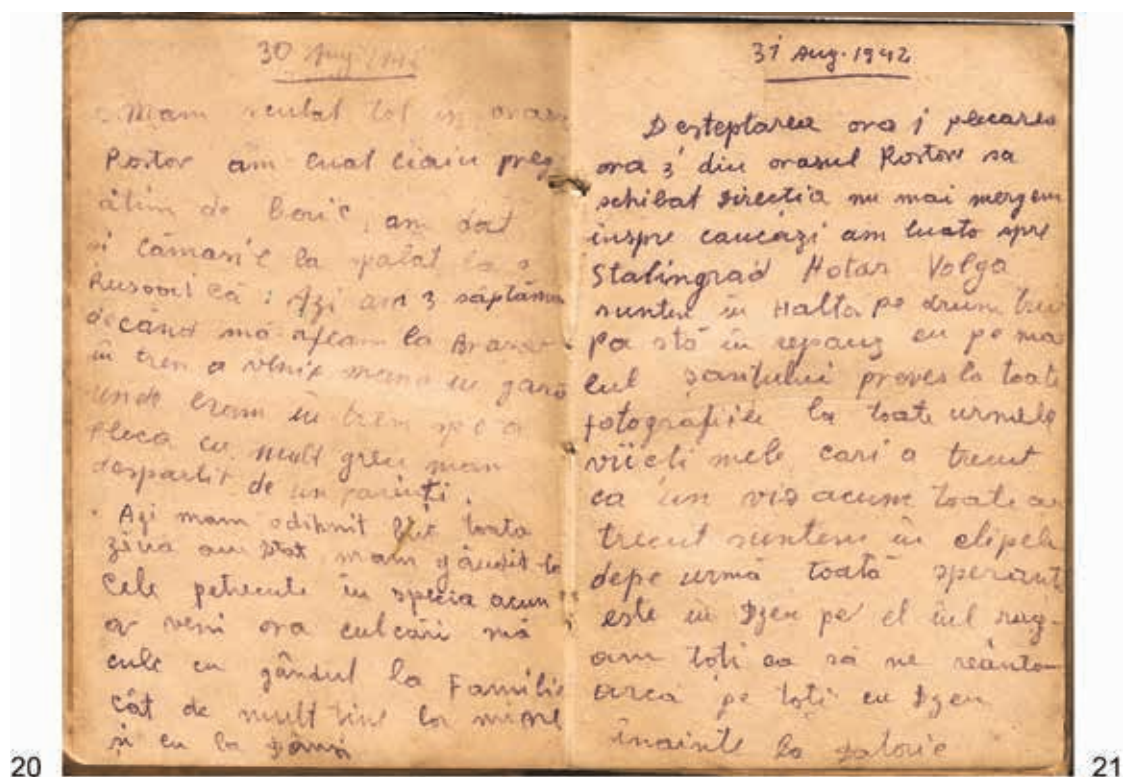 30 Aug. 1942
Mam sculat tot in oras
Rostov am luat ciaiu preg
ătim de boric, am dat
si cămasile la spălat la o
Rusooică : Azi am 3 săptămîn
decând mă aflam la Brasov
in tren a venit mama in gară
unde eram in tren spre a
pleca cu mult greu mam
despartit de un parinti.
Azi mam odihnit toata
ziua am stat, mam gândit la
Cele petrecute in specia acum
a veni ora culcări mă
culc cu gândul la Familie
cât de mult tine lor mine
si eu la
20
31 Aug. 1942
Desteptarea ora 1 plecarea
ora 3 din orasul Rostov sa
schibat directia nu mai mergem
inspre caucazi am luato spre
Stalingrad Hotar Volga
suntem in Halta pe drum tru
pa stă in repauz eu pe ma
lul santului proves la toate
fotografiile la toate urmele
viieti mele cari a trecut
ca un vis acum toate a
trecut suntem in clipele
depe urmă toată sperant
este in Dzeu pe el iul rug-
am toti ca să ne reânto
arca pe toti cu Dzeu
inainte la datorie
21